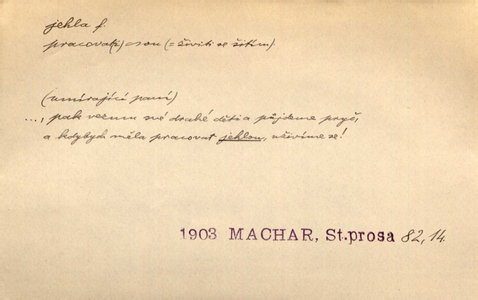 jehla f.
pracovat(i) ~ou (= živiti se šitím)
(umírající paní)
..., pak vezmu své drahé děti a půjdeme pryč,
a kdybych měla pracovat jehlou, uživíme se!
1903 MACHAR, St.prosa 82,14.